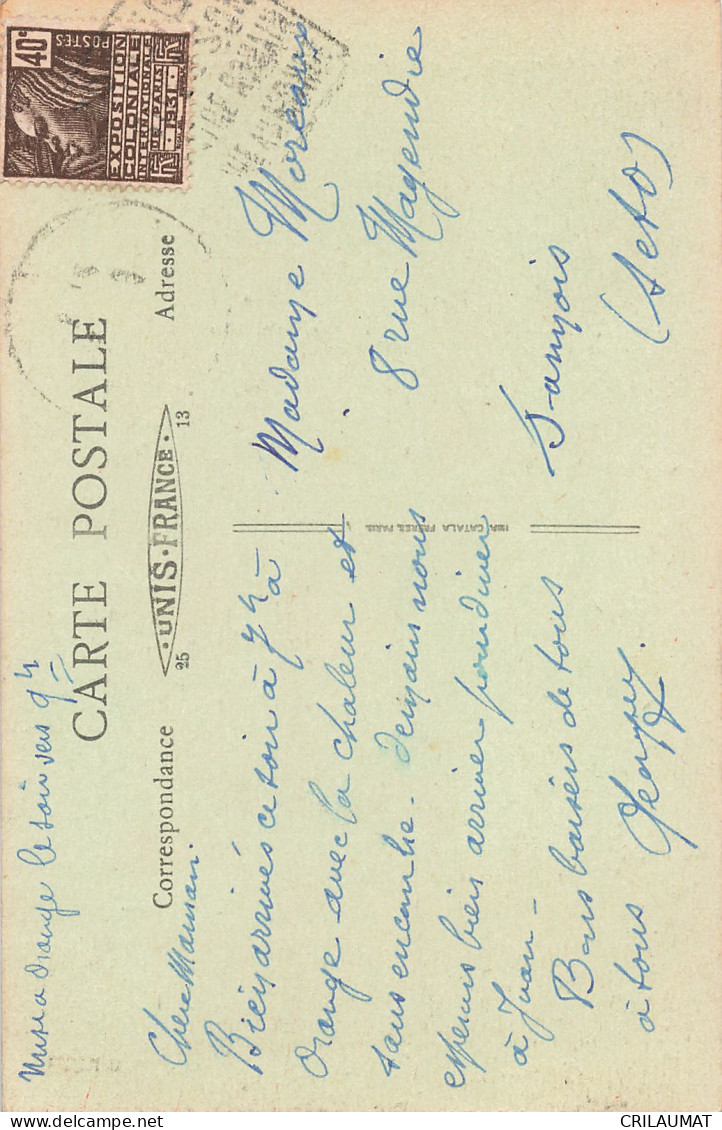 40c
POSTES
EXPOSITION
COLONIALE
INTERNATIONALE
PARIS
1931
CARTE POSTALE
25 UNIS-FRANCE 13
Correspondance
Adresse
Orange le soir vers 9h
Chère Maman
Bien arrivés ce soir à 7h à
Orange avec la chaleur et
sans encombre. Demain nous
espérons bien arriver pour diner
à Juan -
Bons baisers de tous
à tous
IMP. CATALA FRÈRES, PARIS
Madame Moreaux
8 rue Magendie
Sannois
(Set O)
CRILAUMAT